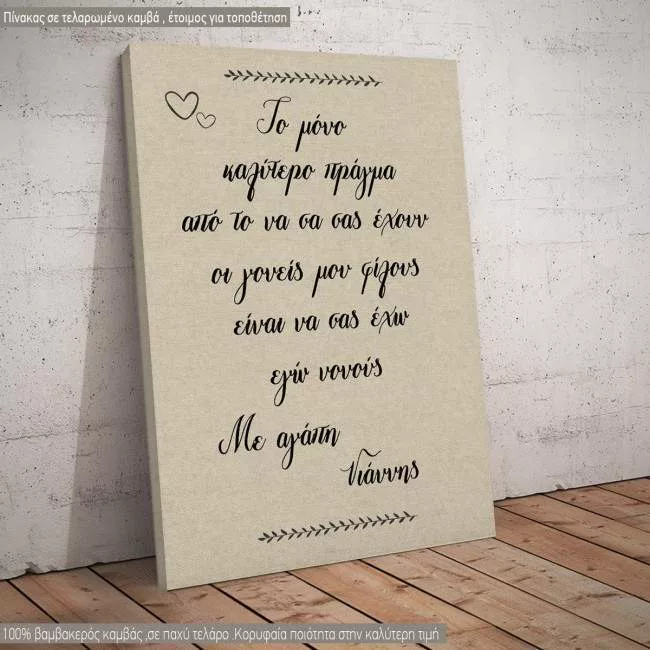 Πίνακας σε τελαρωμένο καμβά , έτοιμος για τοποθέτηση
Το μόνο
καλύτερο πράγμα
από το να σα σας έχουν
οι γονείς μου φίλους
είναι να σας έχω
εγώ νονούς
Με αγάπη
Γιάννης
100% βαμβακερός καμβάς ,σε παχύ τελάρο .Κορυφαία ποιότητα στην καλύτερη τιμή